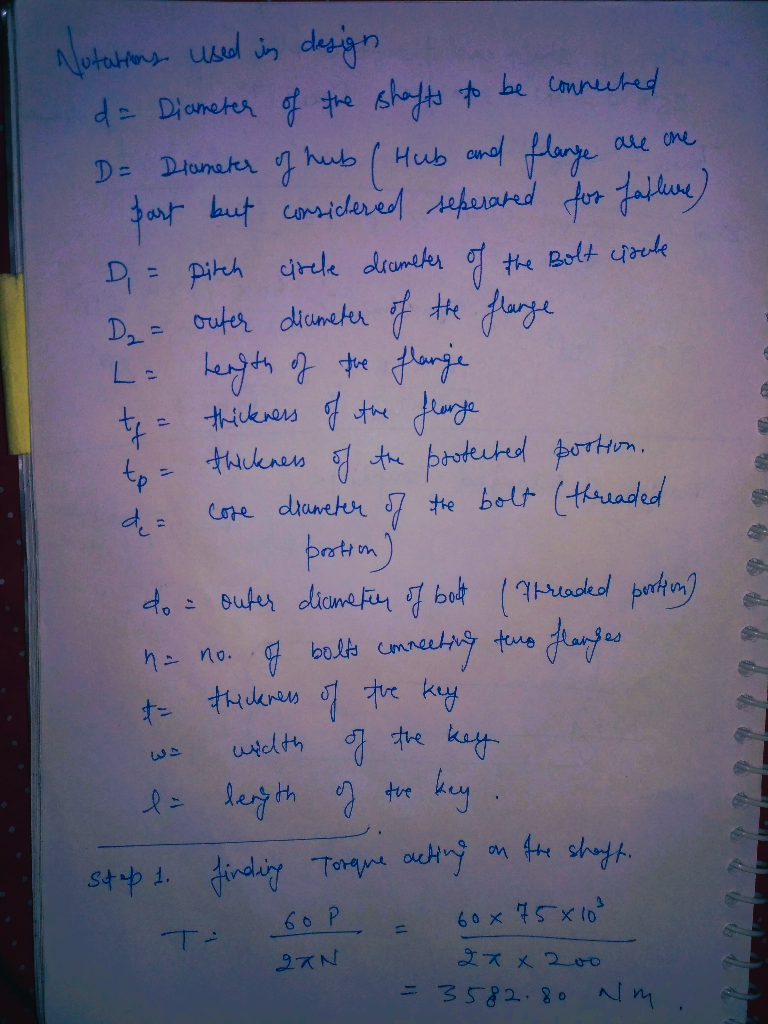 Notations used in design
d = Diameter of the shafts to be connected
D = Diameter of hub ( Hub and flange are one
part but considered seperated for failure )
D₁ = pitch circle diameter of the Bolt circle
D₂ = outer diameter of the flange
L = Length of the flange
t_f = thickness of the flange
t_p = thickness of the protected portion.
d_c = core diameter of the bolt ( threaded
portion )
d₀ = outer diameter of bolt ( Threaded portion )
n = no. of bolts connecting two flanges
t = thickness of the key
w = width of the key
l = length of the key .
Step 1. finding Torque acting on the shaft.
T = 60 P / 2πN = 60 x 75 x 10³ / 2π x 200
= 3582.80 Nm .